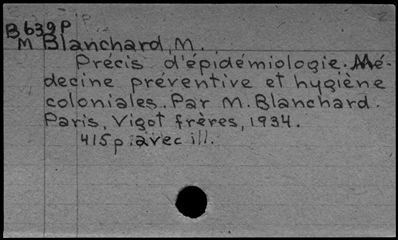 B639P
M Blanchard, M.
Précis d'épidémiologie. Mé-
decine préventive et hygiène
coloniales. Par M. Blanchard.
Paris, Vigot frères, 1934.
415 p. avec ill.